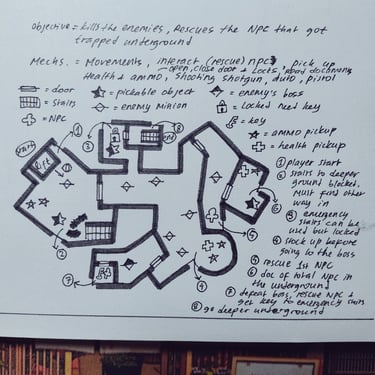 Objective = kills the enemies, Rescues the NPC that got
trapped underground
Mechs. = Movements, interact (rescue) npc, pick up
open, close door & Locks, read documents
Health & ammo, shooting shotgun, auto, pistol
= door
= pickable object
= enemy's boss
= Stairs
= enemy minion
= locked need key
= NPC
= key
= ammo pickup
= health pickup
Start
Lift
End
1
2
3
4
5
6
7
8
① player start
② stairs to deeper
ground blocked.
Must find other
way in
③ emergency
stairs can be
used but locked
④ stock up before
going to the boss
⑤ rescue 1st NPC
⑥ doc of total NPC in
the underground
⑦ defeat boss, rescue NPC &
get key to emergency stairs
⑧ go deeper underground